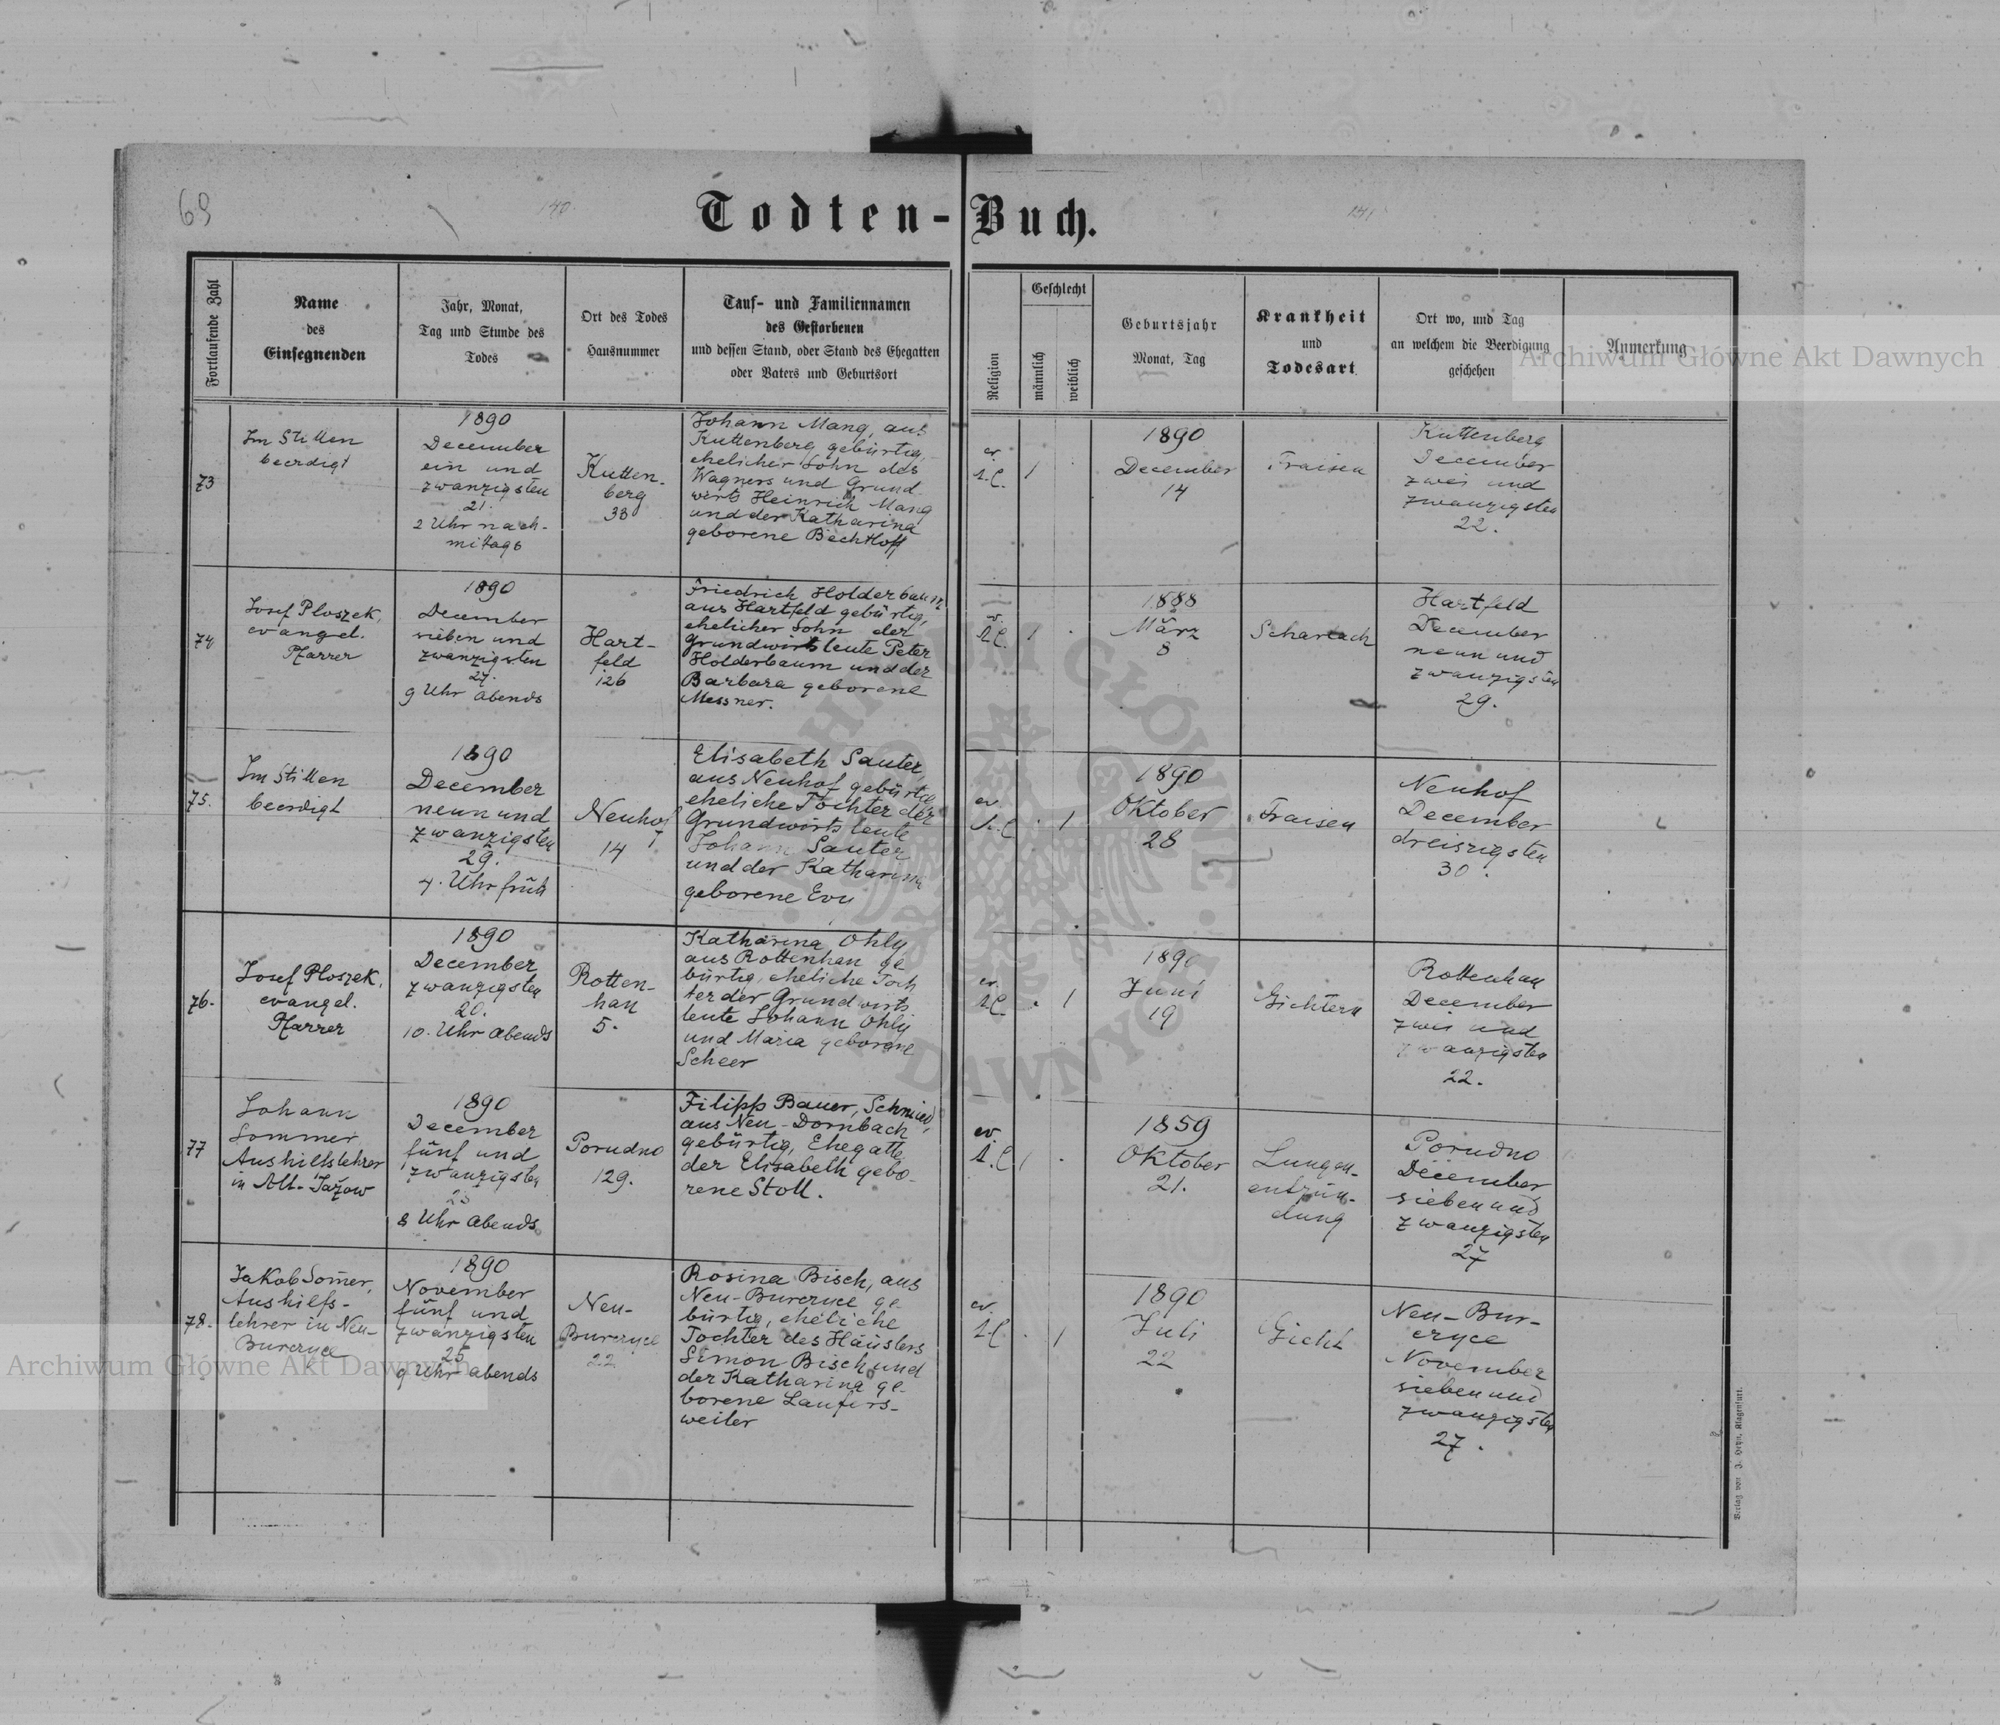 69
140.
141
Todten-Buch.
Fortlaufende Zahl
Name
des
Einsegnenden
Jahr, Monat,
Tag und Stunde des
Todes
Ort des Todes
Hausnummer
Tauf- und Familiennamen
des Gestorbenen
und dessen Stand, oder Stand des Ehegatten
oder Vaters und Geburtsort
Religion
Geschlecht
männlich
weiblich
Geburtsjahr
Monat, Tag
Krankheit
und
Todesart
Ort wo, und Tag
an welchem die Beerdigung
geschehen
Anmerkung
73
Im Stillen
beerdigt
1890
December
ein und
zwanzigsten
21.
2 Uhr nach-
mitags
Kutten-
berg
38
Johann Mang, aus
Kuttenberg gebürtig,
ehelicher Sohn des
Wagners und Grund
wirts Heinrich Mang
und der Katharina
geborene Bechtloff
ev.
A.C.
1
1890
December
14
Fraisen
Kuttenberg
December
zwei und
zwanzigsten
22.
74
Josef Ploszek,
evangel.
Pfarrer
1890
December
sieben und
zwanzigsten
27.
9 Uhr abends
Hart-
feld
126
Friedrich Holderbaum
aus Hartfeld gebürtig,
ehelicher Sohn der
Grundwirtsleute Peter
Holderbaum und der
Barbara geborene
Messner.
ev.
A.C.
1
1888
März
8
Scharlach
Hartfeld
December
neun und
zwanzigsten
29.
75.
Im Stillen
beerdigt
1890
December
neun und
zwanzigsten
29.
4. Uhr früh
Neuhof
14
Elisabeth Sauter,
aus Neuhof gebürtig
eheliche Tochter der
Grundwirtsleute
Johann Sauter
und der Katharina
geborene Evy
ev.
A.C.
1
1890
Oktober
28
Fraisen
Neuhof
December
dreiszigsten
30.
76.
Josef Ploszek,
evangel.
Pfarrer
1890
December
zwanzigsten
20.
10. Uhr abends
Rotten-
han
5.
Katharina Ohly
aus Rottenhan ge
bürtig, eheliche Toch
ter der Grundwirts
leute Johann Ohly
und Maria geborene
Scheer
ev.
A.C.
1
1890
Juni
19
Gichtern
Rottenhan
December
zwei und
zwanzigsten
22.
77
Johann
Sommer
Aushilfslehrer
in Alt-Jažow
1890
December
fünf und
zwanzigsten
25
8 Uhr abends
Porudno
129.
Filipp Bauer, Schmied,
aus Neu-Dornbach
gebürtig, Ehegatte
der Elisabeth gebo-
rene Stoll.
ev.
A.C.
1
1859
Oktober
21.
Lungen-
entzün-
dung
Porudno
December
sieben und
zwanzigsten
27
78.
Jakob Som̄er,
Aushilfs-
lehrer in Neu-
Burczyce
1890
November
fünf und
zwanzigsten
25
9 Uhr abends
Neu-
Burczyce
22
Rosina Bisch, aus
Neu-Burczyce ge-
bürtig, eheliche
Tochter des Häuslers
Simon Bisch und
der Katharina ge-
borene Laufers-
weiler
ev.
A.C.
1
1890
Juli
22
Gicht
Neu-Bur-
czyce
November
sieben und
zwanzigsten
27.
Verlag von J. Heyn, Klagenfurt.
Archiwum Główne Akt Dawnych
Archiwum Główne Akt Dawnych